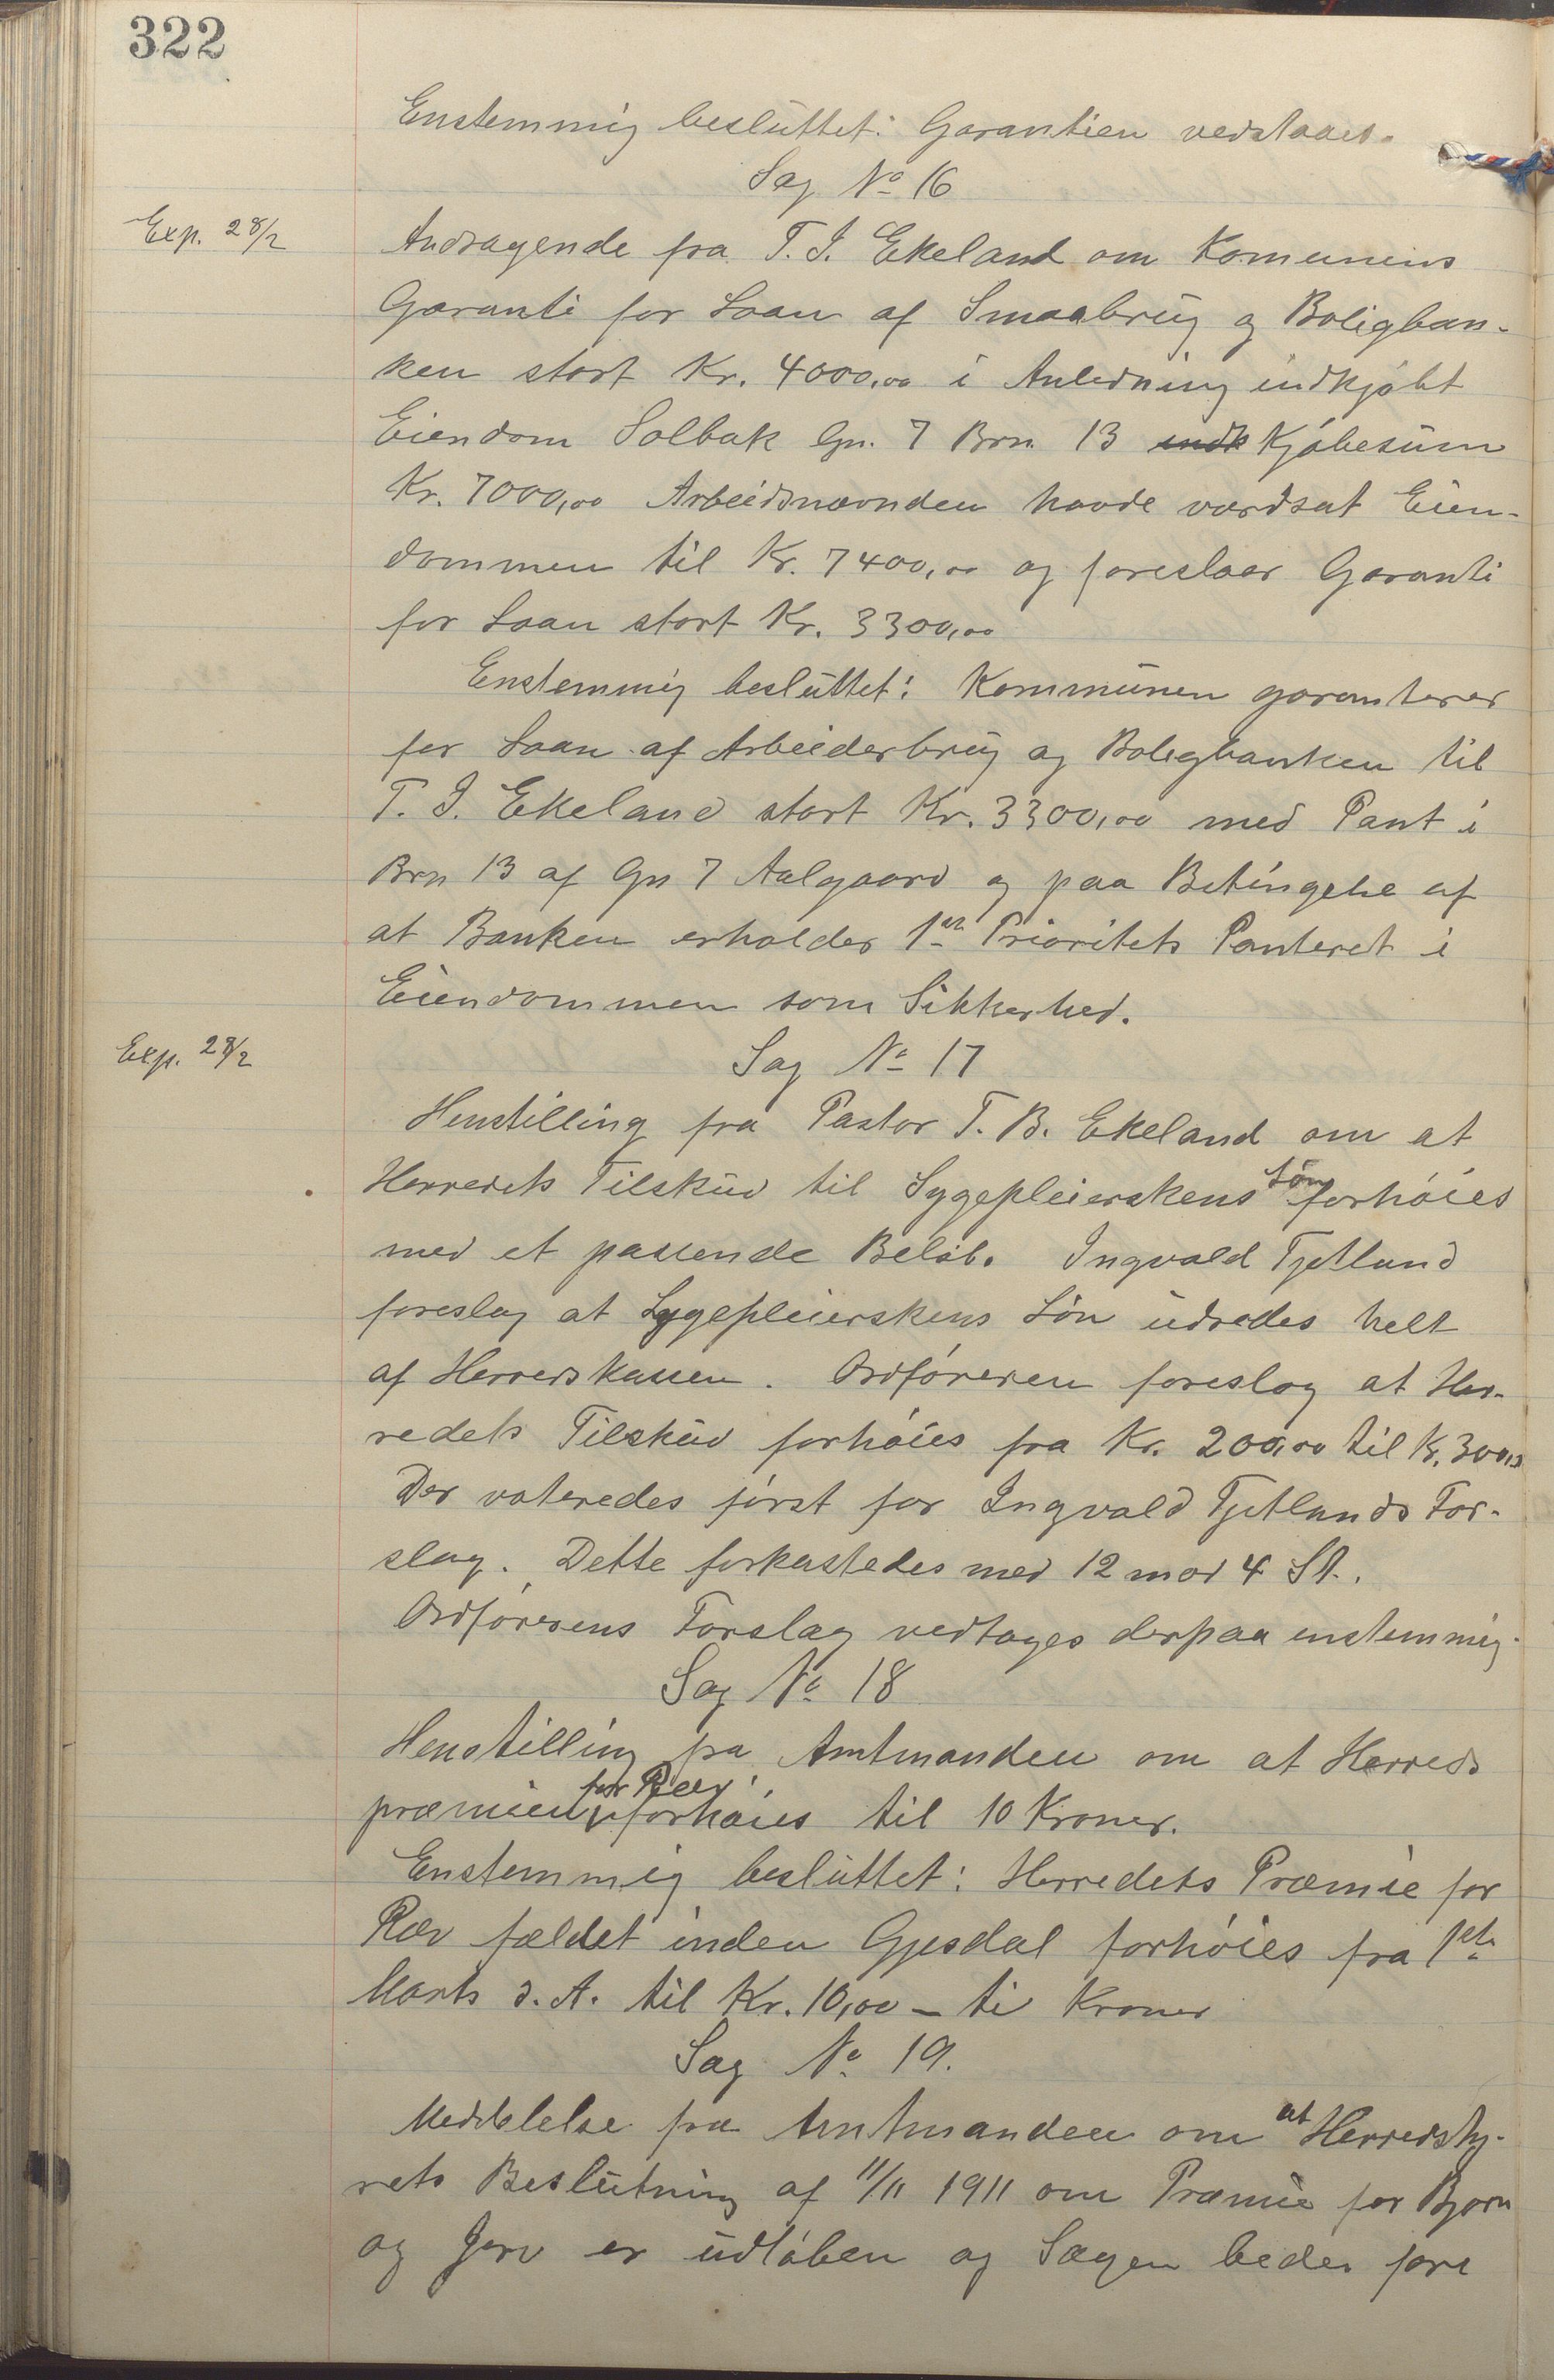 322
Enstemmig besluttet: Garantien vedstaaes.
Sag No 16
Exp. 28/2
Andragende fra T. I. Ekeland om Komunens
Garanti for Laan af Smaabrug og Boligban-
ken stort Kr. 4000,00 i Anledning indkjøbt
Eiendom Solbak Gn. 7 Brn. 13 indk Kjøbesum
Kr. 7000,00 Arbeidsnævnden havde værdsat Eien-
dommen til Kr. 7400,00 og foreslaar Garanti
for Laan stort Kr. 3300,00
Enstemmig besluttet: Kommunen garanterer
for Laan af Arbeiderbrug og Boligbanken til
T. I. Ekeland stort Kr. 3300,00 med Pant i
Brn 13 af Gn 7 Aalgaard og paa Betingelse af
at Banken erholder 1ste Prioritets Panteret i
Eiendommen som Sikkerhed.
Exp. 28/2
Sag No 17
Henstilling fra Pastor T. B. Ekeland om at
Herredets Tilskud til Sygepleierskens Løn forhøies
med et passende Beløb. Ingvald Tjetland
foreslog at Sygepleierskens Løn udredes helt
af Herredskassen. Ordføreren foreslog at Her-
redets Tilskud forhøies fra Kr. 200,00 til Kr. 300,00
Der voteredes først for Ingvald Tjetlands For-
slag. Dette forkastedes med 12 mod 4 St..
Ordførerens Forslag vedtages derpaa enstemmig.
Sag No 18
Henstilling fra Amtmanden om at Herreds
præmien for Ræv forhøies til 10 Kroner.
Enstemmig besluttet: Herredets Præmie for
Ræv fældet inden Gjesdal forhøies fra 1ste
Marts d. A. til Kr. 10,00 – ti Kroner
Sag No 19.
Meddelelse fra Amtmanden om at Herredsty-
rets Beslutning af 11/11 1911 om Præmie for Bjørn
og Jerv er udløben og Sagen bedes fore